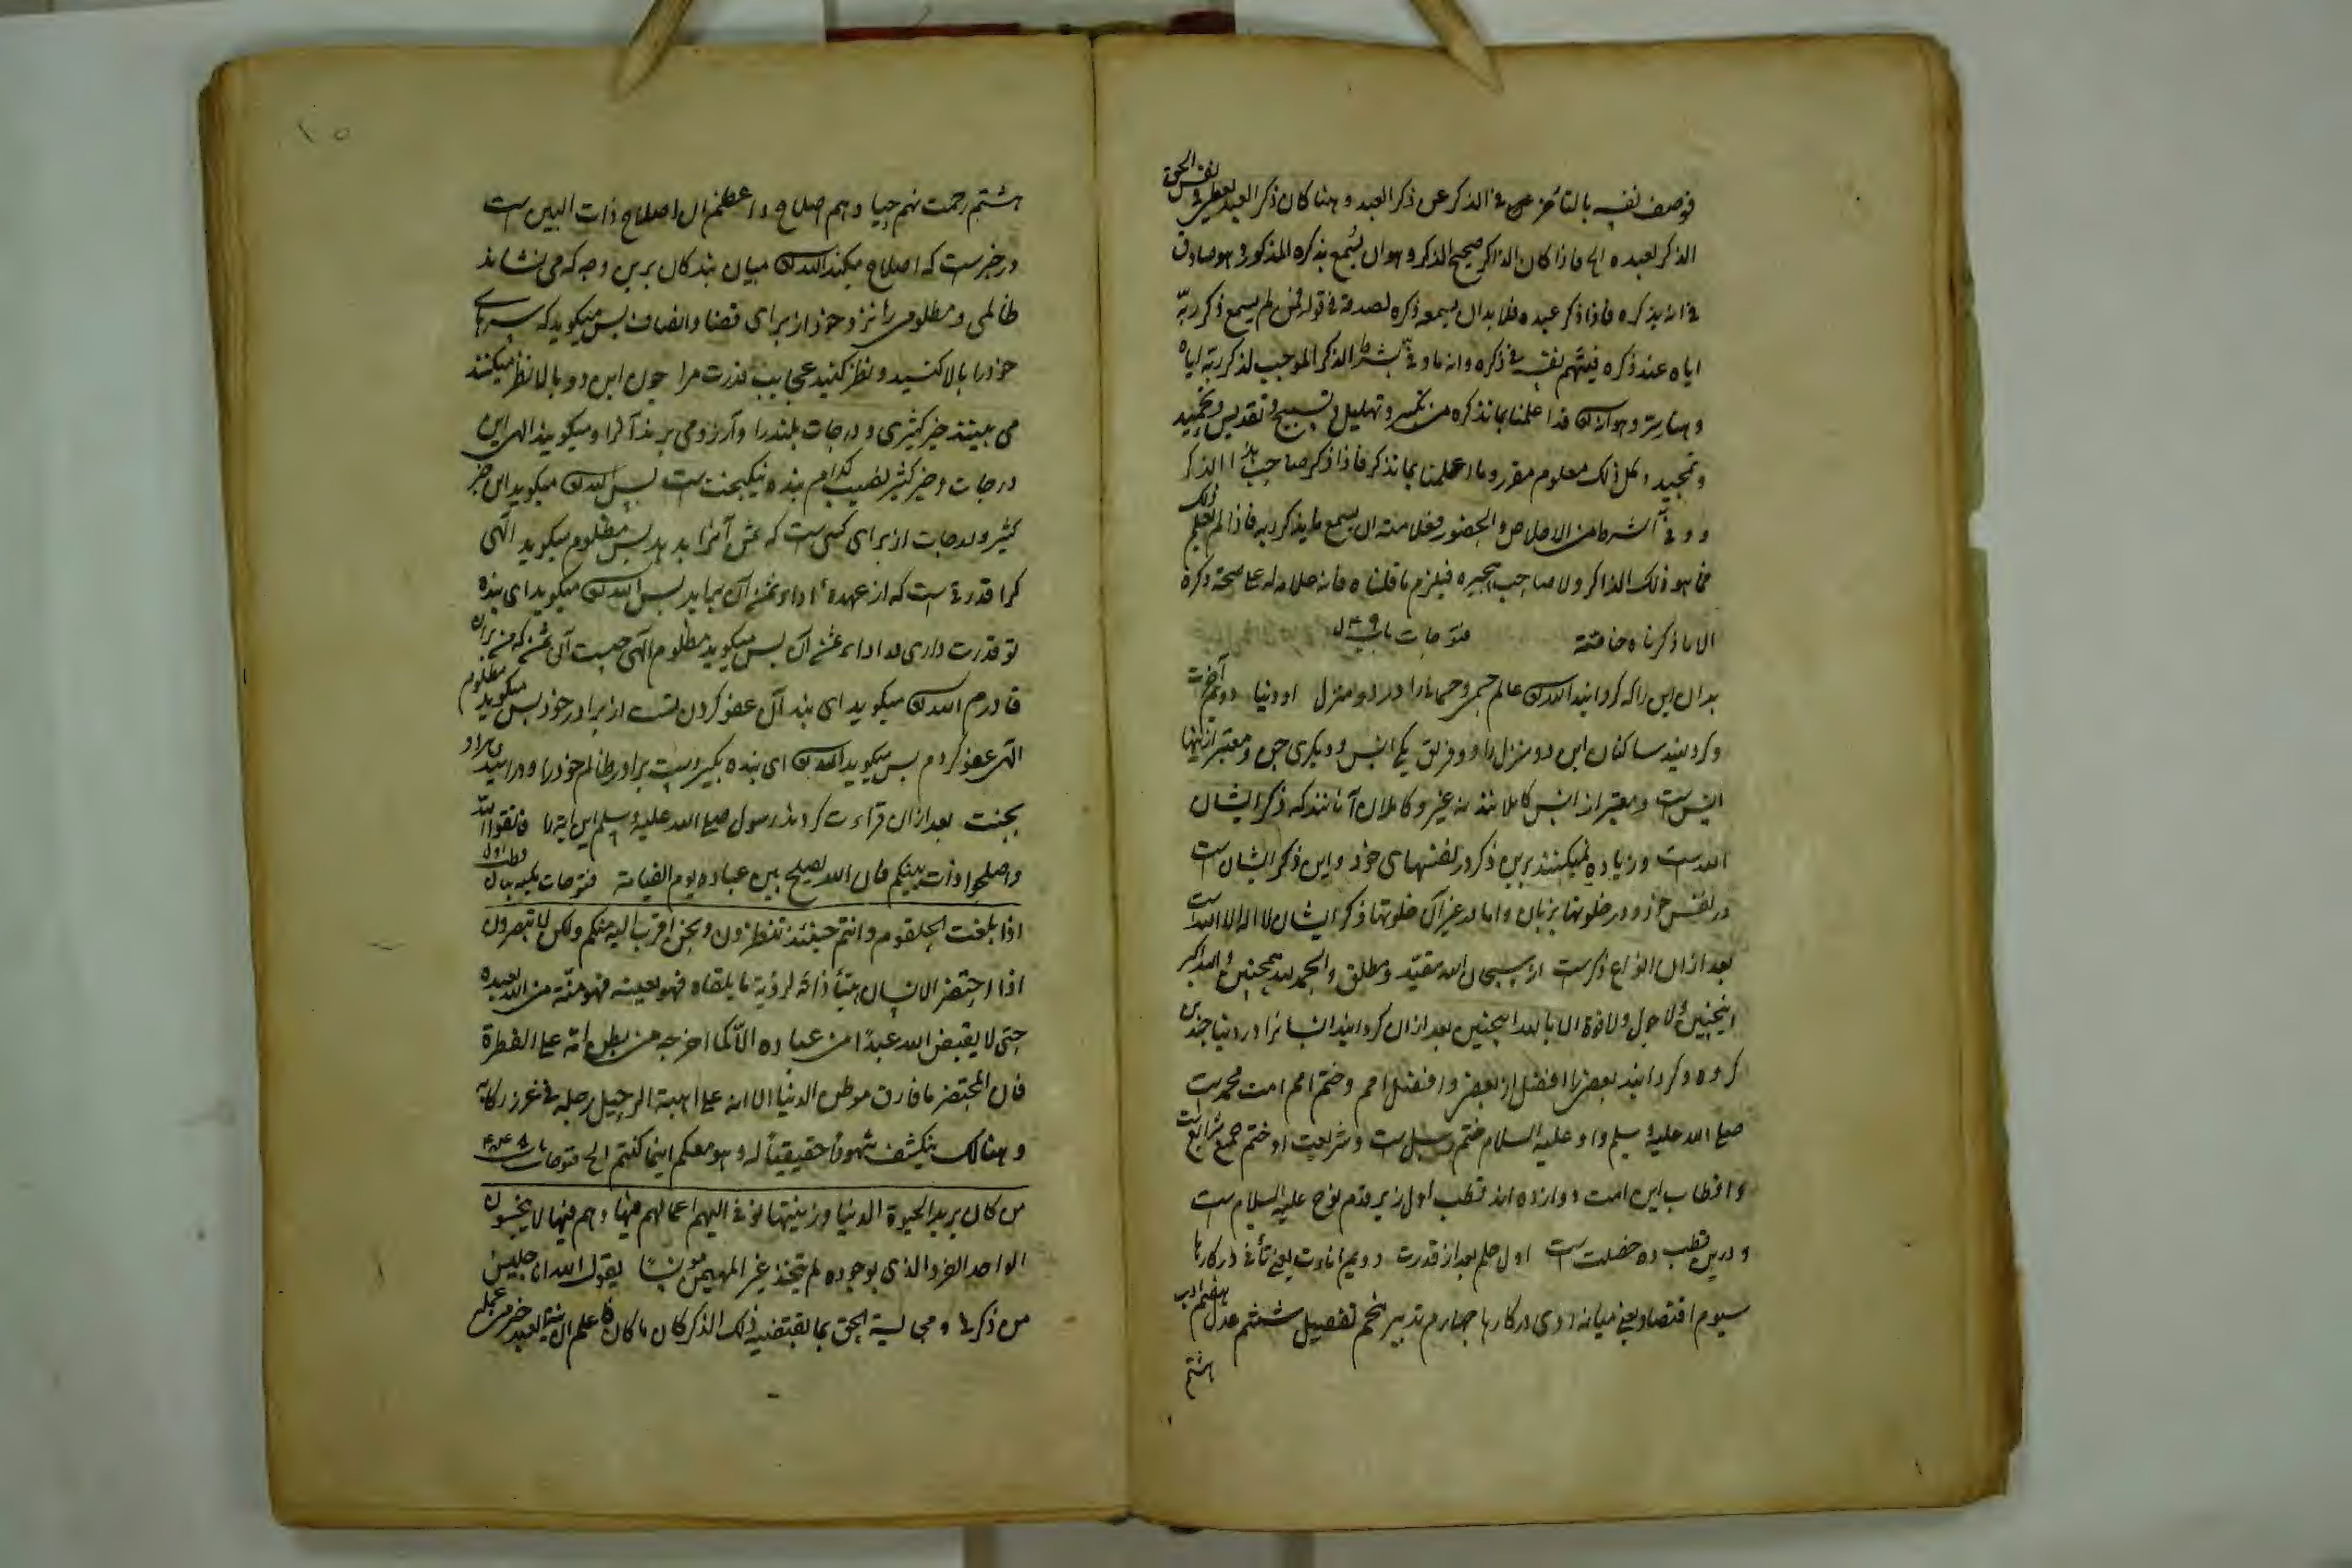 فوصف نفسه بالتأخر فى الذكر عن ذكر العبد و هنا كان ذكر العبد
لنفس الحق
الذكر لعبده الى فاذا كان الذاكر صحيح الذكر و هو ان يسمع بذكره المذكور و هو صادق
فى انه يذكره فاذا ذكر عبده فلا بد ان يسمعه ذكره لصدقه فى قوله فمن لم يسمع ذكر ربه
اياه عند ذكره فيتهم نفسه فى ذكره و انه ما وفى بشرط الذكر الموجب لذكر ربه اياه
و هنا سر و هو ان قد اعلمنا بما نذكره من تكبير و تهليل و تسبيح و تقديس و تحميد
و تمجيد و كل ذلك معلوم مقرر و ما اعلمنا بما نذكر فاذا ذكر صاحب هذا الذكر
و وفى الشرط من الاخلاص و الحضور فعلامته ان يسمع ما يذكر ربه فاذا لم يعلم ذلك
فما هو ذلك الذاكر ولا صاحب فيلزم ما قلناه فانه علامة له على صحة ذكره
الا ما ذكرناه خاصة فتوحات باب
بدان اين را كه كردانيد الله عالم جسم و جسمانى را در دو منزل او دنيا دوم آخرت
و كردانيد ساكنان اين دو منزل را دو فريق يكى انس و ديكرى جن و معتبر ازينها
انس است و معتبر از انس كاملانند نه غير و كاملان آنانند كه ذكر ايشان
الله است و زياده نميكنند برين ذكر در نفسهاى خود و اين ذكر ايشان است
در نفس خود و در خلوتها بزبان و اما در غير آن خلوتها ذكر ايشان لا اله الا الله است
بعد از ان انواع ذكر است از سبحان الله مقيد و مطلق و الحمد لله همچنين و الله اكبر
اينچنين و لا حول و لا قوة الا بالله اينچنين بعد از ان كردانيد ايشانرا در دنيا چندين
كروه و كردانيد بعض را افضل از بعض و افضل امم و ختم امم امت محمد است
صلى الله عليه و سلم و او عليه السلام ختم رسل است و شريعت او ختم جميع شرايع است
و اقطاب اين امت دوازده اند قطب اول زير قدم نوح عليه السلام است
و درين قطب ده خصلت است اول حلم بعد از قدرت دويم انائت يعنى تأنى در كارها
سيوم اقتصاد يعنى ميانه روى در كارها چهارم تدبير پنجم تفصيل ششم عدل هفتم ادب
هشتم
١٥
هشتم رحمت نهم حيا و هم صلاح و اعظم ان اصلاح ذات البين است
در خبر است كه اصلاح ميكند الله ميان بندكان برين وجه كه مى نشاند
ظالمى و مظلومى را نزد خود از براى قضا و انصاف پس ميكويد كه سرهاى
خود را بالا كنيد و نظر كنيد عجايب قدرت مرا چون اين دو بالا نظر ميكنند
مى بينند خير كثيرى و درجات بلند را و آرزو مى برند آنرا و ميكويند الهى اين
درجات و خير كثير نصيب كدام بنده نيكبخت است پس الله ميكويد اين خير
كثير و درجات از براى كسى است كه ثمن آنرا بدهد پس مظلوم ميكويد الهى
كرا قدرت است كه از عهده اداء ثمن آن بيايد پس الله ميكويد اى بنده
تو قدرت دارى بر اداء ثمن آن پس ميكويد مظلوم الهى چيست آن ثمن كه من بران
قادرم الله ميكويد اى بنده آن عفو كردن تست از برادر خود پس ميكويد مظلوم
الهى عفو كردم پس ميكويد الله اى بنده بكير دست برادر ظالم خود را و درآييد هردو
بجنت بعد از ان قراءت كردند رسول صلى الله عليه و سلم اين آيه را فاتقوا الله
و اصلحوا ذات بينكم فان الله يصلح بين عباده يوم القيامة فتوحات مكيه بيان
قطب اول
اذا بلغت الحلقوم و انتم حينئذ تنظرون و نحن اقرب اليه منكم ولكن لا تبصرون
اذا احتضر الانسان لرؤية ما يلقاه فهو منة من الله بعبده
حتى لا يقبض الله عبدا من عباده الا كما اخرجه من بطن امه على الفطرة
فان المحتضر ما فارق موطن الدنيا الا انه على اهبة الرحيل رجله فى غرز ركابه
و هنالك ينكشف شهودا حقيقيا له و هو معكم اينما كنتم الى فتوحات باب
من كان يريد الحيوة الدنيا و زينتها نوف اليهم اعمالهم فيها و هم فيها لا يبخسون
الواحد الفرد الذى بوجوده لم يتخذ غير المهيمن مونسا يقول الله انا جليس
من ذكرنى و مجالسة الحق بما يقتضيه ذلك الذكر كان ما كان فاعلم ان